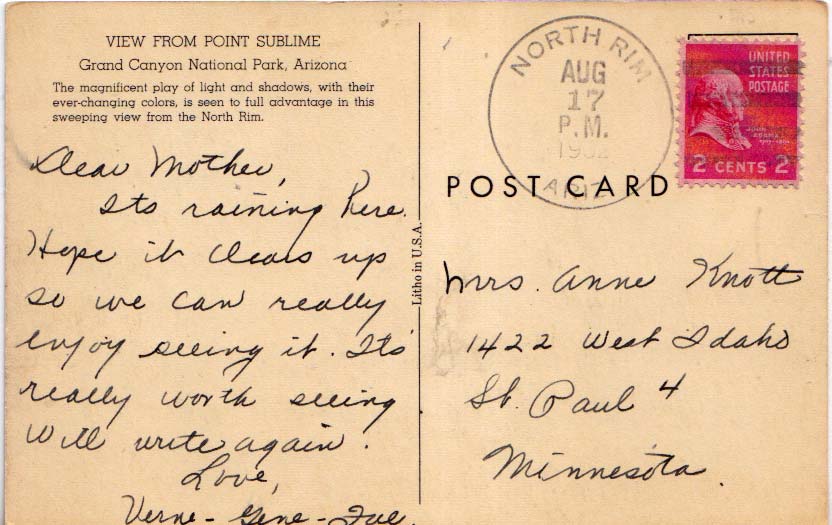 VIEW FROM POINT SUBLIME
Grand Canyon National Park, Arizona
The magnificent play of light and shadows, with their
ever-changing colors, is seen to full advantage in this
sweeping view from the North Rim.
Dear Mother,
Its raining here.
Hope it clears up
so we can really
enjoy seeing it. Its
really worth seeing
Will write again.
Love,
Verne - Gene -
Litho in U.S.A.
NORTH RIM
AUG
17
P.M.
ARIZ
UNITED
STATES
POSTAGE
JOHN
ADAMS
2 CENTS 2
POST CARD
Mrs. Anne Knott
1422 West Idaho
St. Paul 4
Minnesota.